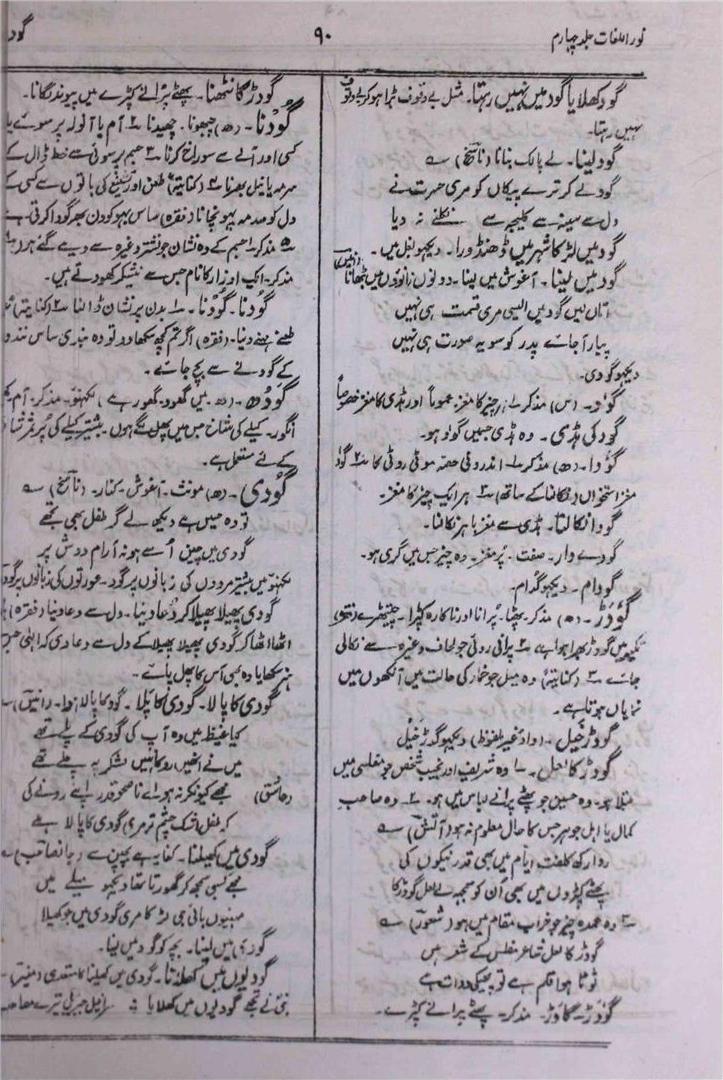 نور اللغات جلد چہارم
۹۰
گود
گود کھلایا گود میں نہیں رہتا۔ مثل بے وقوف بڑا ہو کر بے وقوف
نہیں رہتا۔
گود لینا۔ لے پالک بنانا (ناسخ) ؎
گود لے کر ترے پیکاں کو مری حسرت نے
دل سے سینہ سے کلیجہ سے نکلنے نہ دیا
گود میں لڑکا شہر میں ڈھنڈورا۔ دیکھو بغل میں۔
گود میں لینا۔ آغوش میں لینا۔ دونوں زانوؤں میں بٹھانا (انیس)
اماں لیں گود میں ایسی مری قسمت ہی نہیں
پیار آجائے پدر کو سو یہ صورت ہی نہیں
دیکھو گودی۔
گودا۔ مذکر ہر چیز کا مغز عموماً اور ہڈی کا مغز خصوصاً
گود کی ہڈی۔ وہ ہڈی جس میں گود ہو۔
گودا۔ (ھ) مذکر ۱۔ اندرونی حصہ موٹی روٹی کا ۲۔ گود
مغز استخواں (نکالنا کے ساتھ) ۳۔ ہر ایک چیز کا مغز۔
گودا نکالنا۔ ہڈی سے مغز باہر نکالنا۔
گودے دار۔ صفت۔ پُر مغز۔ وہ چیز جس میں گری ہو۔
گودام۔ دیکھو گرام۔
گودڑ۔ (ھ) مذکر۔ پھٹا۔ پرانا اور ناکارہ کپڑا۔ چیتھڑے (فقرہ)
تکیہ میں گودڑ بھرا ہوا ہے ۲۔ پرانی روئی جو لحاف وغیرہ سے نکالی
جائے ۳۔ (کنایۃً) وہ میل جو بخار کی حالت میں آنکھوں میں
نمایاں ہوتا ہے۔
گودڑ خیل۔ (واؤ غیر ملفوظ) دیکھو گدڑ خیل
گودڑ کا لعل۔ ۱۔ وہ شریف اور نجیب شخص جو مفلسی میں
مبتلا ہو۔ وہ حسین جو پھٹے پرانے لباس میں ہو۔ ۲۔ وہ صاحب
کمال یا اہل جوہر جس کا حال معلوم نہ ہو (آتش) ؎
روا رکھ کلفت ایام میں بھی قدر نیکوں کی
پھٹے کپڑوں میں بھی ان کو سمجھ لے لعل گودڑ کا
۳۔ وہ عمدہ چیز جو خراب مقام میں ہو (شعور) ؎
گودڑ کا لعل شاعر مفلس کے شعر ہیں
ٹوٹا ہوا قلم ہے تو پھیکی دوات ہے
گودڑ۔ گاوڑ۔ مذکر۔ پھٹے پرانے کپڑے۔
گودڑ گانٹھنا۔ پھٹے پرانے کپڑے میں پیوند لگانا۔
گودنا۔ (ھ) چبھونا۔ چھیدنا ۲۔ آم یا آنولہ پر سوئے یا
کسی اور آلے سے سوراخ کرنا ۳۔ جسم پر سوئی سے خط ڈال کے
سرمہ یا نیل بھرنا ۴۔ (کنایۃً) طعن اور تشنیع کی باتوں سے کسی کے
دل کو صدمہ پہونچانا (فقرہ) ساس بہو کو دن بھر گودا کرتی ہے
۵۔ مذکر۔ جسم کے وہ نشان جو نشتر وغیرہ سے دیے گئے ہوں
مذکر۔ ایک اوزار کا نام جس سے نیشکر کھودتے ہیں۔
گودنا۔ گودنا۔ ۱۔ بدن پر نشان ڈالنا ۲۔ (کنایۃً)
طعنے مہنے دینا۔ (فقرہ) اگر تم کچھ سکھا دو تو وہ بیاری ساس نندوں
کے گودنے سے بچ جائے۔
گودھ۔ (ھ) لکھنؤ۔ مذکر۔ آم
انگور۔ کیلے کی شاخ جس میں پھل لگے ہوں۔ بیشتر کیلے کی پُر ثمر شاخ
کے لئے مستعمل ہے۔
گودی۔ (ھ) مونث۔ آغوش۔ کنار۔ (ناسخ) ؎
تو وہ حسیں ہے دیکھ لے گر طفل بھی تجھے
گودی میں چین اُسے ہو نہ آرام دوش پر
لکھنؤ میں بیشتر مردوں کی زبانوں پر گود۔ عورتوں کی زبانوں پر گودی
گودی پھیلا پھیلا کر دعا دینا۔ دل سے دعا دینا (فقرہ)
اٹھا اٹھا کر گودی پھیلا پھیلا کے دل سے دعا دی کہ الٰہی جس
ہنر سکھایا وہ بھی اس کا پھل پائے۔
گودی کا پالا۔ گودی کا پلا۔ گود کا پالا ہوا۔ (انیس) ؎
کیا غیظ میں وہ آپ کی گودی کے پلے تھے
میں نے انھیں روکا نہیں لشکر پہ چلے تھے
(عاشق) مجھے کیونکر نہ ہوئے ناصحو قدر اپنے رونے کی
کہ طفل اشک چشم تر مری گودی کا پالا ہے
گودی میں کھیلنا۔ کنایہ ہے بچپن سے (جانصاحب) ؎
مجھے کسبی سمجھ کر گھورتا تھا دیکھو میلے میں
مہینوں باجی جی لڑکا مری گودی میں جو کھیلا
گودی میں لینا۔ بچہ کو گود میں لینا۔
گودیوں میں کھلانا۔ گودی میں کھیلنا کا متعدی (منیر)۔
نبی نے تجھے گودیوں میں کھلایا